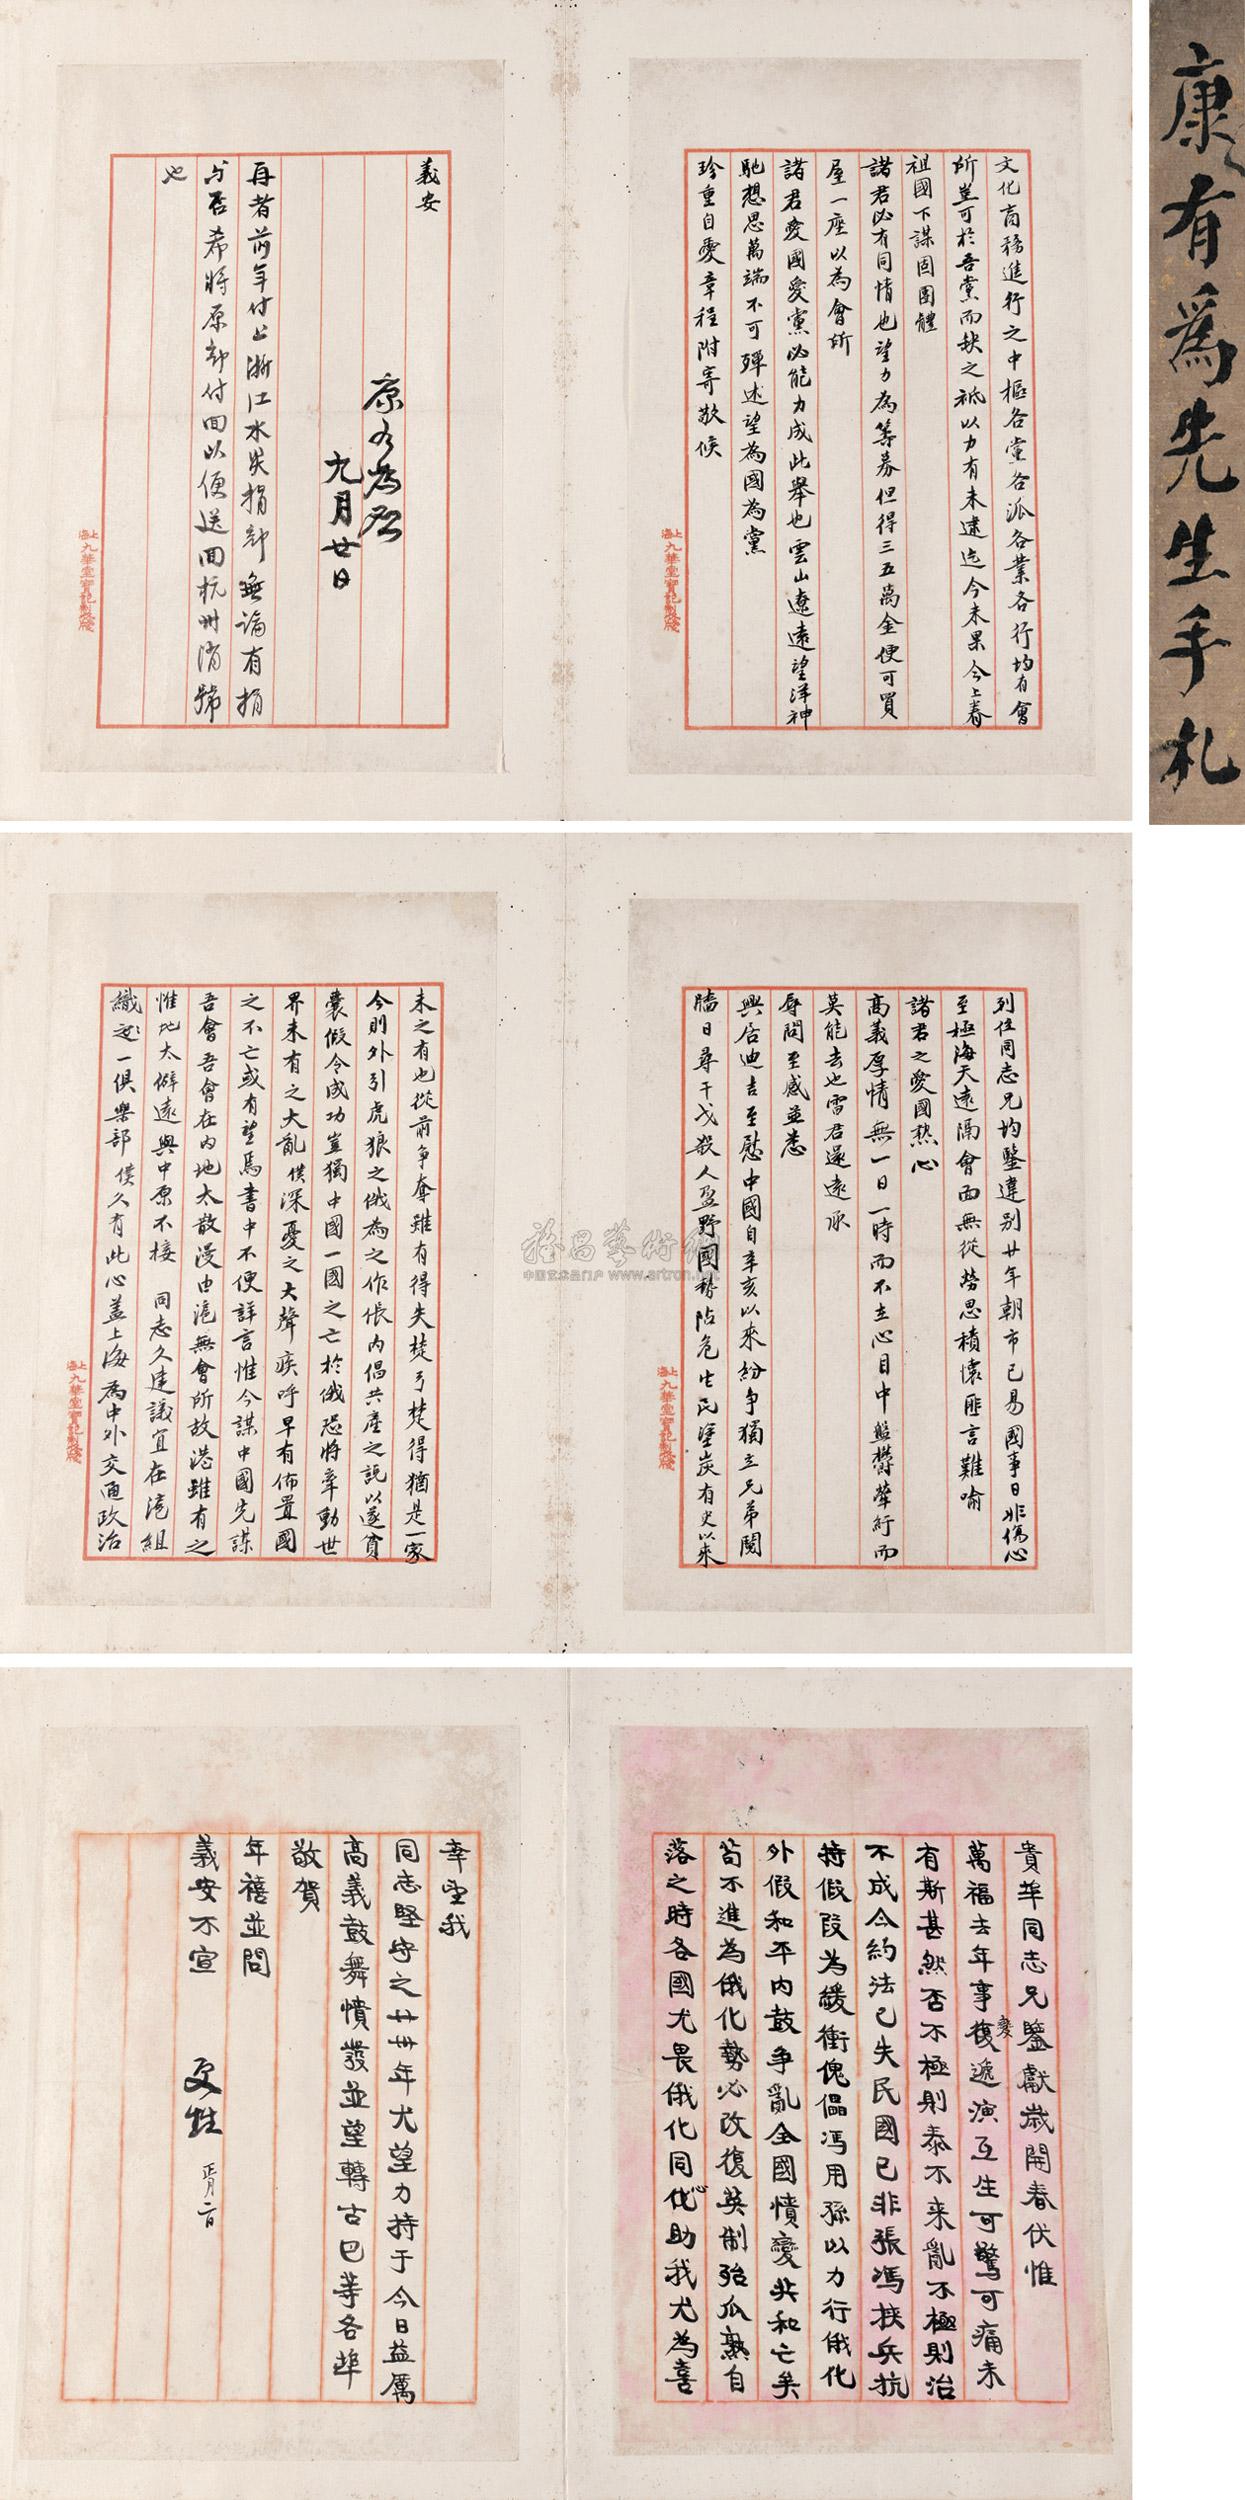 康有為先生手札
文化商務進行之中樞各黨各派各業各行均有會
所豈可於吾黨而缺之祗以力有未逮迄今未果今上春
祖國下謀固團體
諸君必有同情也望力為籌募但得三五萬金便可買
屋一座以為會所
諸君愛國愛黨必能力成此舉也雲山遼遠望洋神
馳想思萬端不可殫述望為國為黨
珍重自愛章程附寄敬候
上海九華堂寶記製箋
義安
康有為啟
九月廿日
再者前年付上浙江水災捐部無論有捐
與否希將原部付回以便送回杭州消號
也
上海九華堂寶記製箋
列位同志兄均鑒違別廿年朝市已易國事日非傷心
至極海天遠隔會面無從勞思積懷匪言難喻
諸君之愛國熱心
高義厚情無一日一時而不在心目中盤欝縈紆而
莫能去也雷君遂遠承
辱問至感並悉
興居迪吉至慰中國自辛亥以來紛爭獨立兄弟鬩
牆日尋干戈殺人盈野國勢阽危生民塗炭有史以來
上海九華堂寶記製箋
未之有也從前爭奪雖有得失楚弓楚得猶是一家
今則外引虎狼之俄為之作倀內倡共產之說以遂貪
囊假令成功豈獨中國一國之亡於俄恐將牽動世
界未有之大亂僕深憂之大聲疾呼早有佈置國
之不亡或有望焉書中不便詳言惟今謀中國先謀
吾會吾會在內地太散漫由滬無會所故港雖有之
惟地太僻遠與中原不接 同志久建議宜在滬組
織一俱樂部僕久有此心蓋上海為中外交通政治
上海九華堂寶記製箋
雅昌藝術網
中国艺术品门户 www.artron.net
貴埠同志兄鑒獻歲開春伏惟
萬福去年事變復遞演互生可驚可痛未
有斯甚然否不極則泰不来亂不極則治
不成今約法已失民國已非張馮挾兵抗
持假段為緩衝傀儡馮用孫以力行俄化
外假和平內鼓爭亂全國憤變共和亡矣
苟不進為俄化勢必改復英制殆瓜熟自
落之時各國尤畏俄化同心化助我尤為喜
幸望我
同志堅守之廿卅年尤望力持于今日益厲
高義鼓舞憤發並望轉古巴等各埠
敬賀
年禧並問
義安不宣
更甡